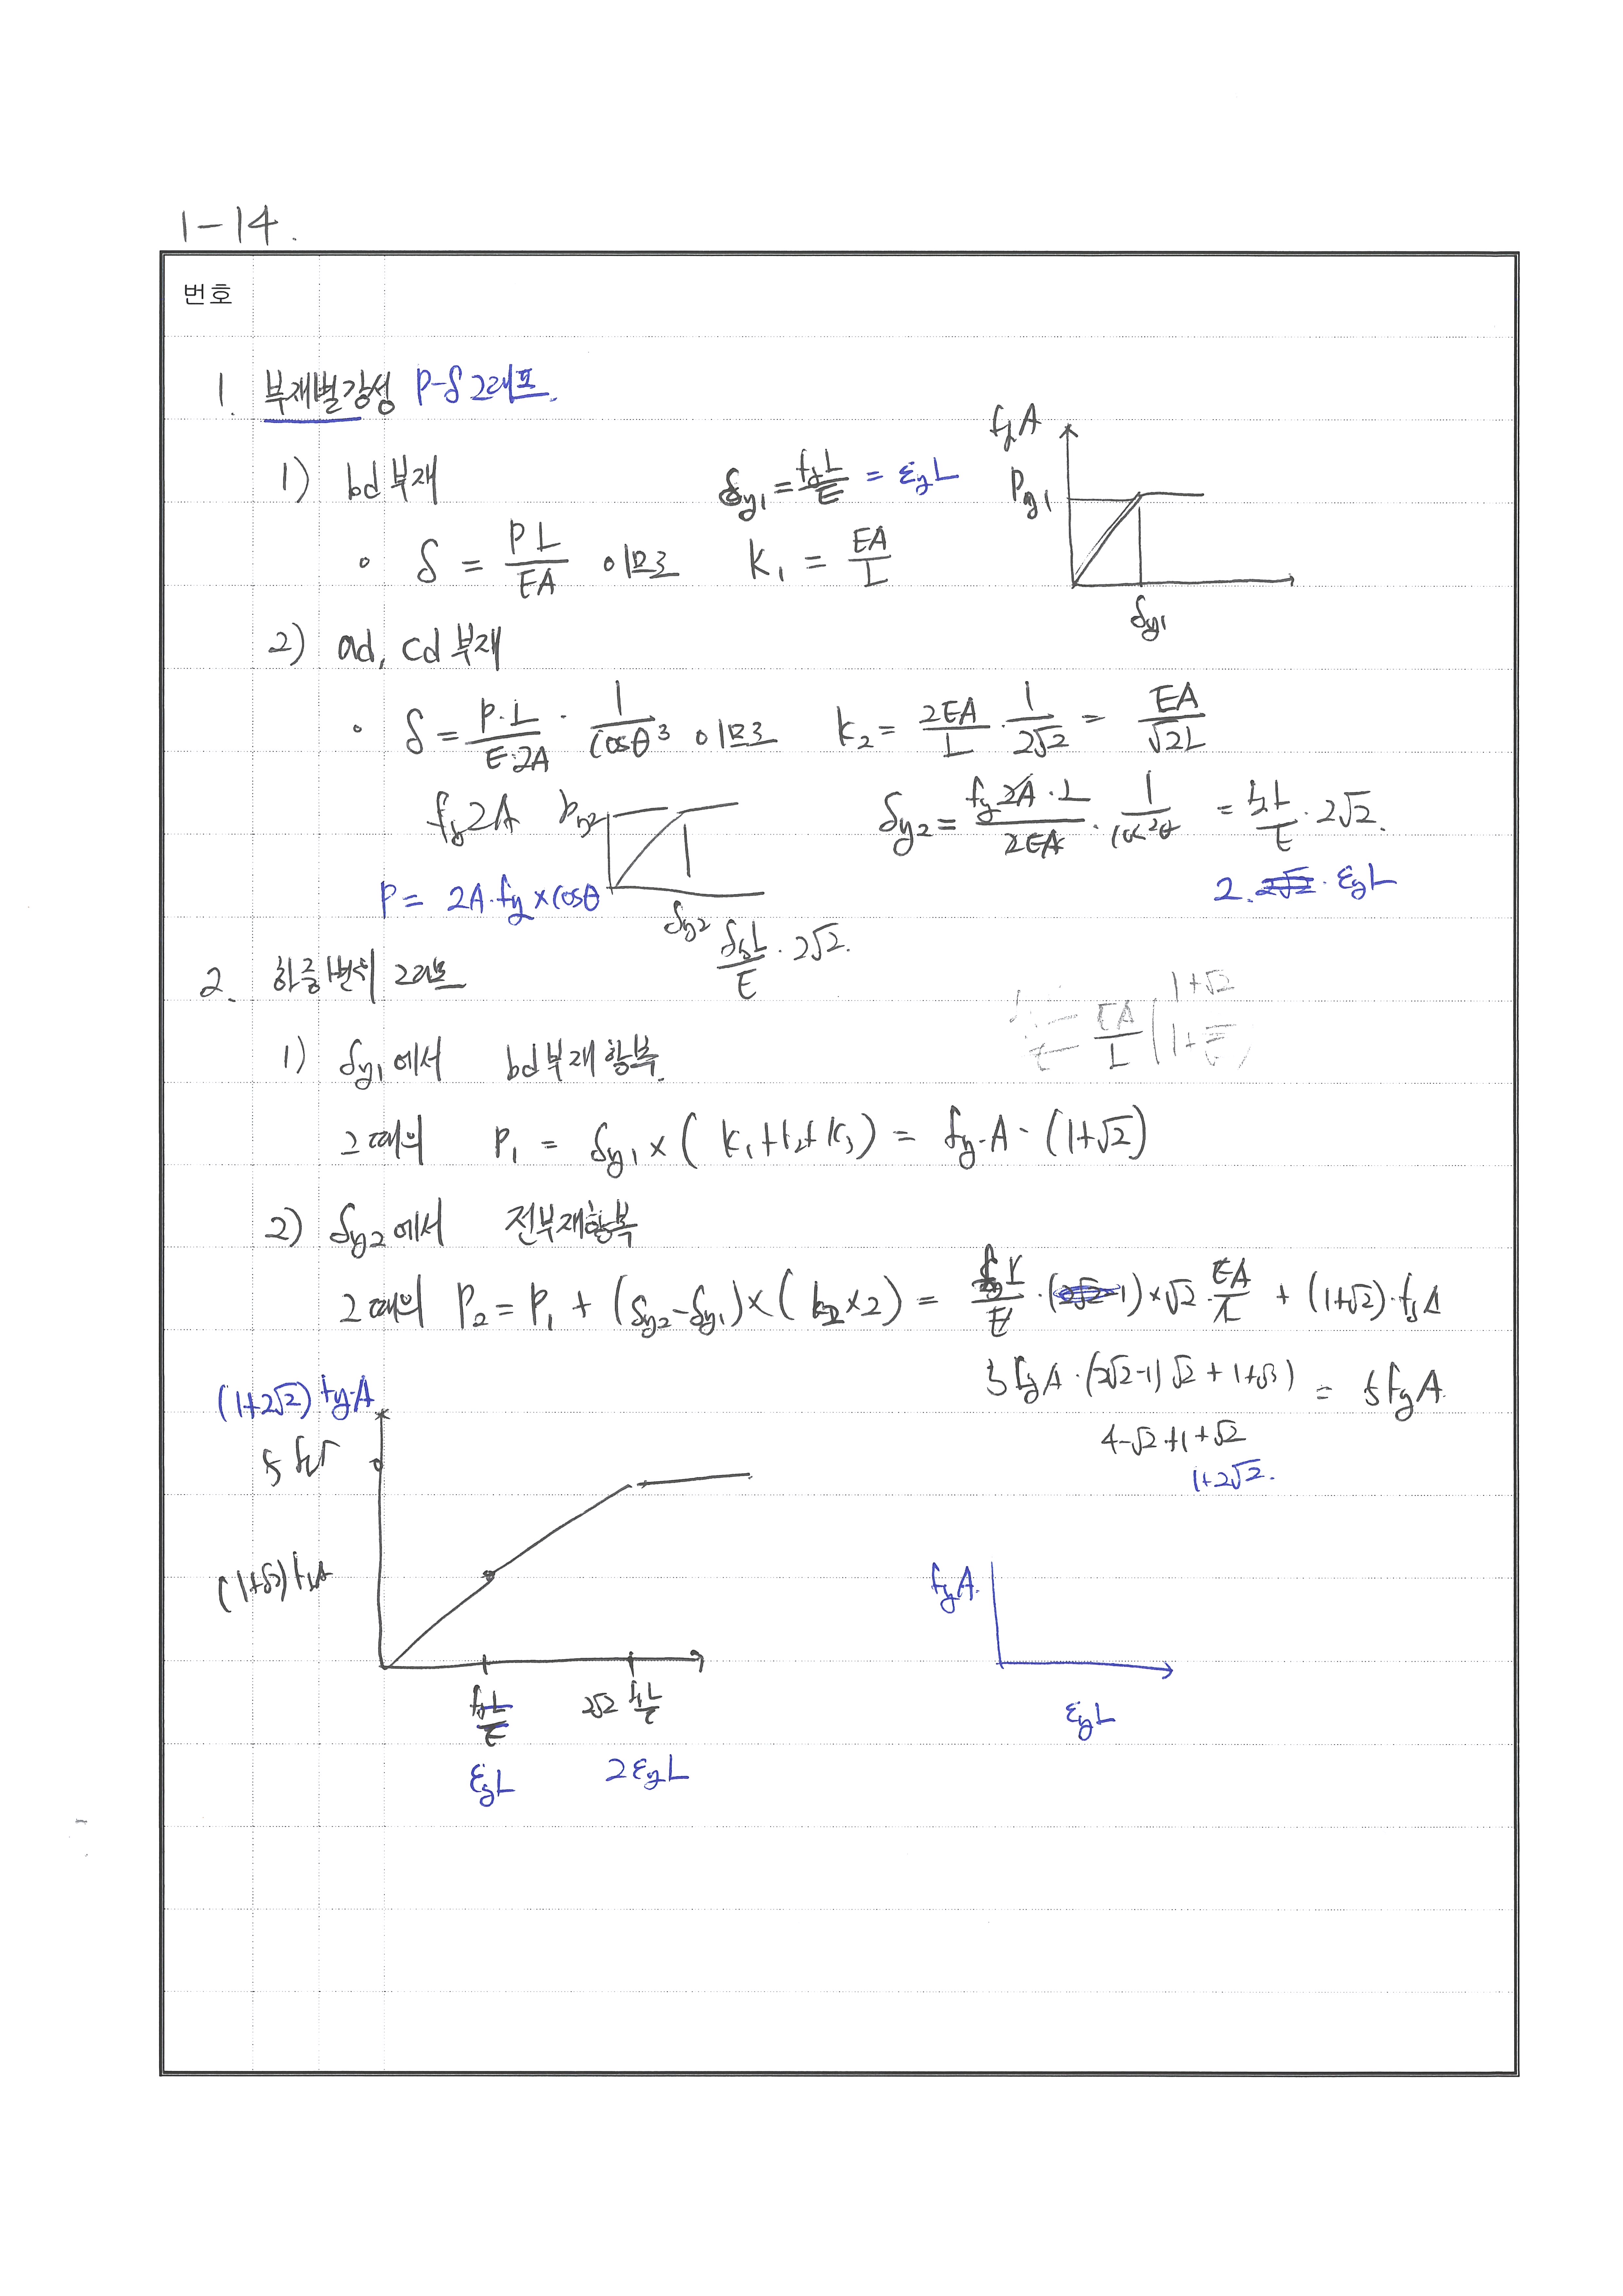 1-14.
번호
1. 부재별강성 P-δ 그래프.
1) bd 부재 δy1 = fyL/E = εyL
fyA
Py1
δy1
∘ δ = PL/EA 이므로 K1 = EA/L
2) ad, cd 부재
∘ δ = P·L/E·2A · 1/cosθ³ 이므로 K2 = 2EA/L · 1/2√2 = EA/√2L
fy2A Py2 δy2 = fy2A·L/2EA · 1/cos²θ = fyL/E · 2√2.
P = 2A·fy×cosθ 2. 2√2 · εyL
δy2 fyL/E · 2√2.
2. 하중변위 그래프
EA/L (1+√2
1) δy1에서 bd부재 항복.
그때의 P1 = δy1 × (K1+K2+K3) = fy·A·(1+√2)
2) δy2에서 전부재항복
그때의 P2 = P1 + (δy2-δy1)×(k2×2) = fyL/E·(2√2-1)×√2·EA/L + (1+√2)·fyA
fyA·(2√2-1)√2 + 1+√2) = 5fyA.
4-√2+1+√2
1+2√2.
(1+2√2)fy·A
(1+√2)fyA
fyL/E 2√2 fyL/E
εyL 2εyL
fyA.
εyL